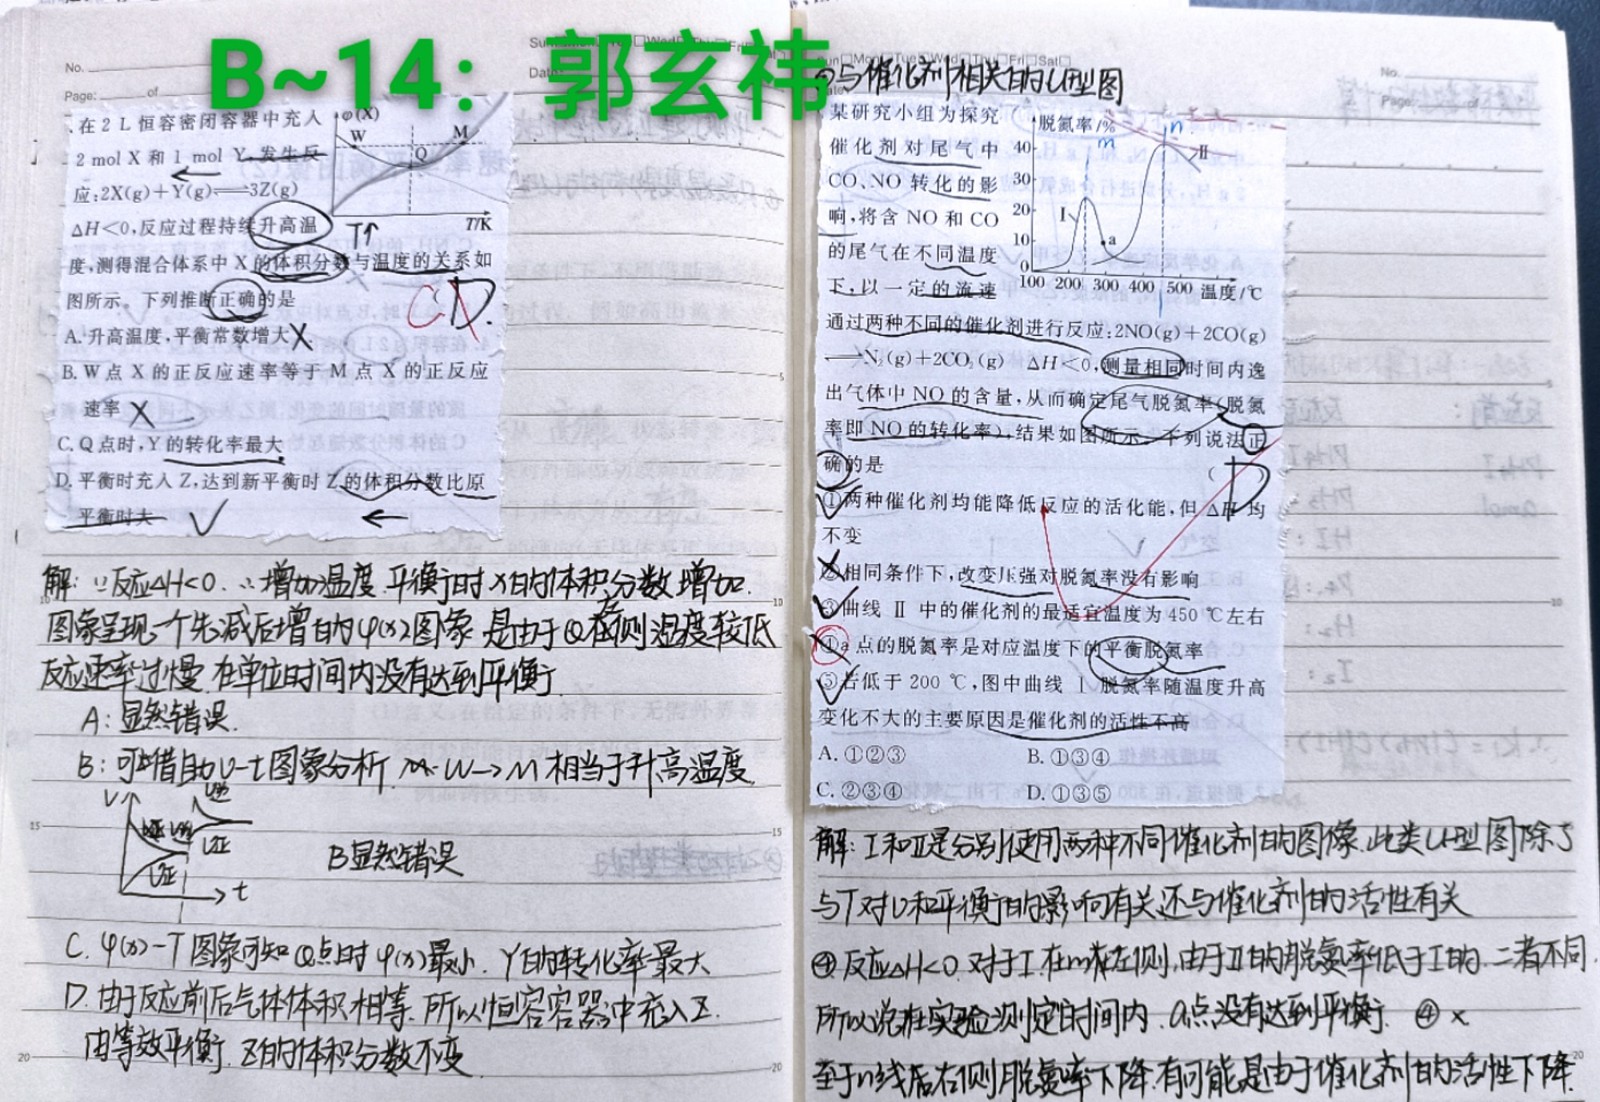 B~14：郭玄祎
No.
Page: of
.在 2 L 恒容密闭容器中充入
2 mol X 和 1 mol Y,发生反
应:2X(g)+Y(g)⇌3Z(g)
ΔH<0,反应过程持续升高温
度,测得混合体系中 X 的体积分数与温度的关系如
图所示。下列推断正确的是
A.升高温度,平衡常数增大
B.W 点 X 的正反应速率等于 M 点 X 的正反应
速率
C.Q 点时,Y 的转化率最大
D.平衡时充入 Z,达到新平衡时 Z 的体积分数比原
平衡时大
φ(X)
W
M
Q
T/K
T↑
C
D.
解:∵反应ΔH<0.∴增加温度.平衡时X的体积分数增加.
图象呈现一个先减后增的φ(x)图象.是由于Q左侧温度较低
反应速率过慢.在单位时间内没有达到平衡.
A:显然错误.
B:可借助υ-t图象分析 W→M 相当于升高温度.
V
t
B显然错误
C.φ(x)-T图象可知Q点时φ(x)最小.Y的转化率最大
D.由于反应前后气体体积相等.所以恒容容器中充入Z.
由等效平衡.Z的体积分数不变
与催化剂相关的υ-T型图
某研究小组为探究
催化剂对尾气中
CO、NO 转化的影
响,将含 NO 和 CO
的尾气在不同温度
下,以一定的流速
通过两种不同的催化剂进行反应:2NO(g)+2CO(g)
⇌N₂(g)+2CO₂(g) ΔH<0,测量相同时间内逸
出气体中 NO 的含量,从而确定尾气脱氮率(脱氮
率即 NO 的转化率),结果如图所示。下列说法正
确的是 ( D
①两种催化剂均能降低反应的活化能,但 ΔH 均
不变
②相同条件下,改变压强对脱氮率没有影响
③曲线 Ⅱ 中的催化剂的最适宜温度为 450 ℃左右
④a 点的脱氮率是对应温度下的平衡脱氮率
⑤若低于 200 ℃,图中曲线 Ⅰ 脱氮率随温度升高
变化不大的主要原因是催化剂的活性不高
A.①②③ B.①③④
C.②③④ D.①③⑤
脱氮率/%
m
n
Ⅱ
40
30
20
10
0
Ⅰ
a
100 200 300 400 500 温度/℃
解:Ⅰ和Ⅱ是分别使用两种不同催化剂的图像.此类υ-T型图除了
与T对υ和平衡的影响有关还与催化剂的活性有关
④反应ΔH<0.对于Ⅰ.在m左侧.由于Ⅱ的脱氮率低于Ⅰ的.二者不同.
所以说在实验测定时间内.a点没有达到平衡. ④×
至于n线后右侧脱氮率下降.有可能是由于催化剂的活性下降.